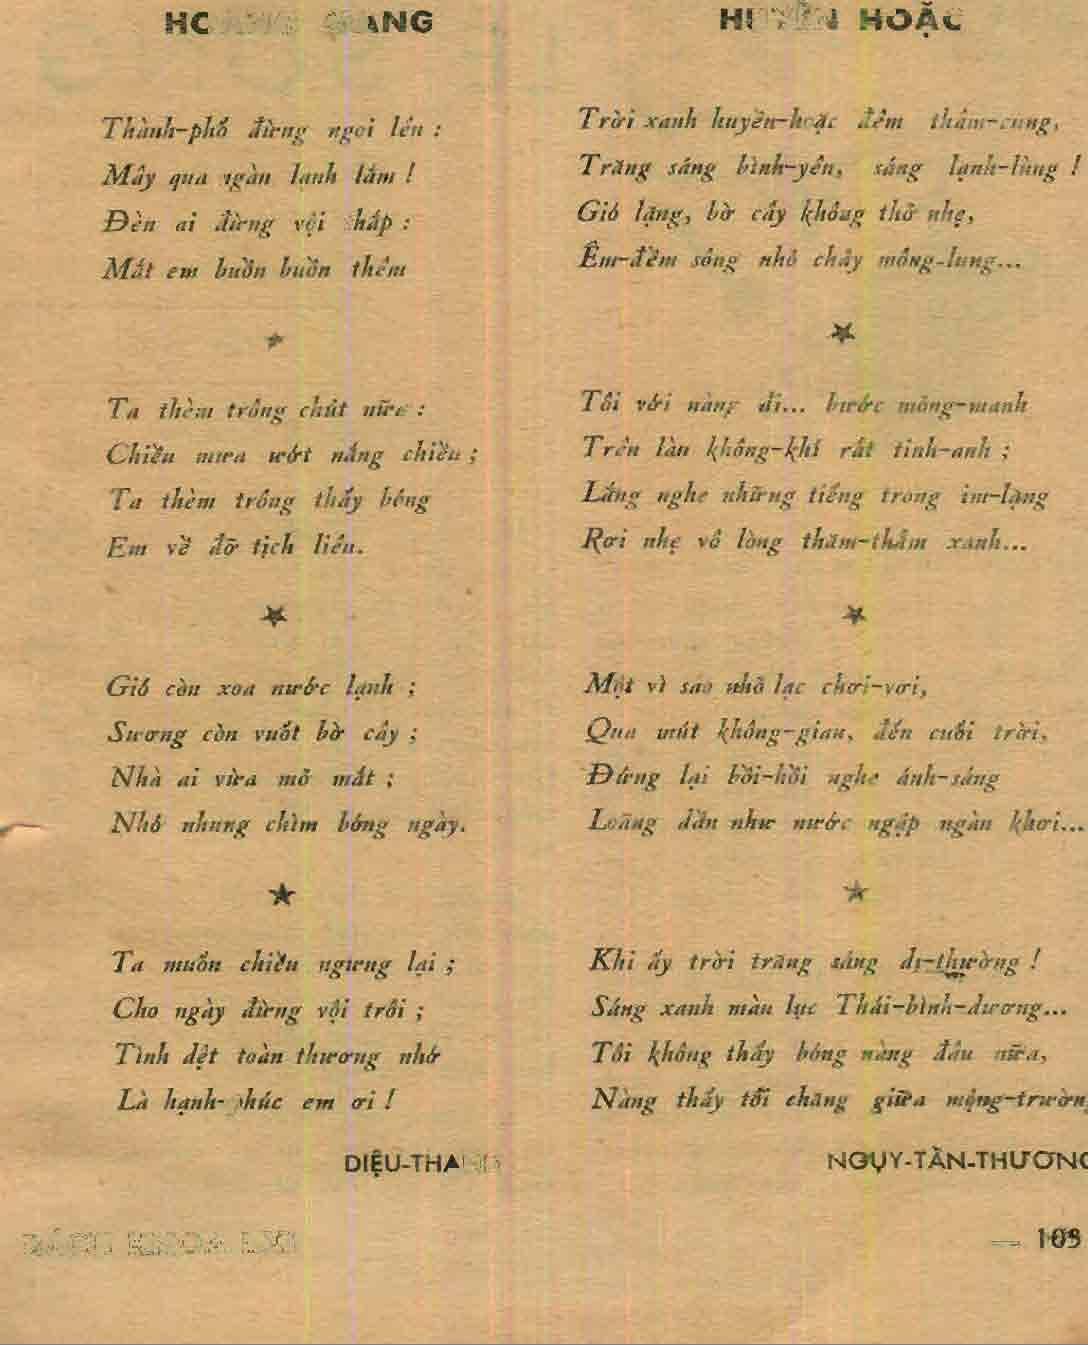 HUYỀN HOẶC
Thành-phố đừng ngoi lên :
Mây qua ngàn lạnh lắm !
Đèn ai đừng vội thắp :
Mắt em buồn buồn thêm
Ta thèm trông chút nữa :
Chiều mưa ướt nắng chiều ;
Ta thèm trông thấy bóng
Em về đỡ tịch liêu.
Gió còn xoa nước lạnh ;
Sương còn vuốt bờ cây ;
Nhà ai vừa mở mắt ;
Nhỏ nhung chìm bóng ngày.
Ta muốn chiều ngưng lại ;
Cho ngày đừng vội trôi ;
Tình dệt toàn thương nhớ
Là hạnh-phúc em ơi !
DIỆU-THANH
Trời xanh huyền-hoặc đêm thâm-cung,
Trăng sáng bình-yên, sáng lạnh-lùng !
Gió lặng, bờ cây không thở nhẹ,
Êm-đềm sông nhỏ chảy mông-lung...
Tôi với nàng đi... bước mỏng-manh
Trên làn không-khí rất tinh-anh ;
Lắng nghe những tiếng trong im-lặng
Rơi nhẹ vô lòng thăm-thẳm xanh...
Một vì sao nhỏ lạc chơi-vơi,
Qua mút không-gian, đến cuối trời,
Đứng lại bồi-hồi nghe ánh-sáng
Loãng dần như nước ngập ngàn khơi...
Khi ấy trời trăng sáng dị-thường !
Sáng xanh màu lục Thái-bình-dương...
Tôi không thấy bóng nàng đâu nữa,
Nàng thấy tôi chăng giữa mộng-trường
NGUY-TẦN-THƯƠNG